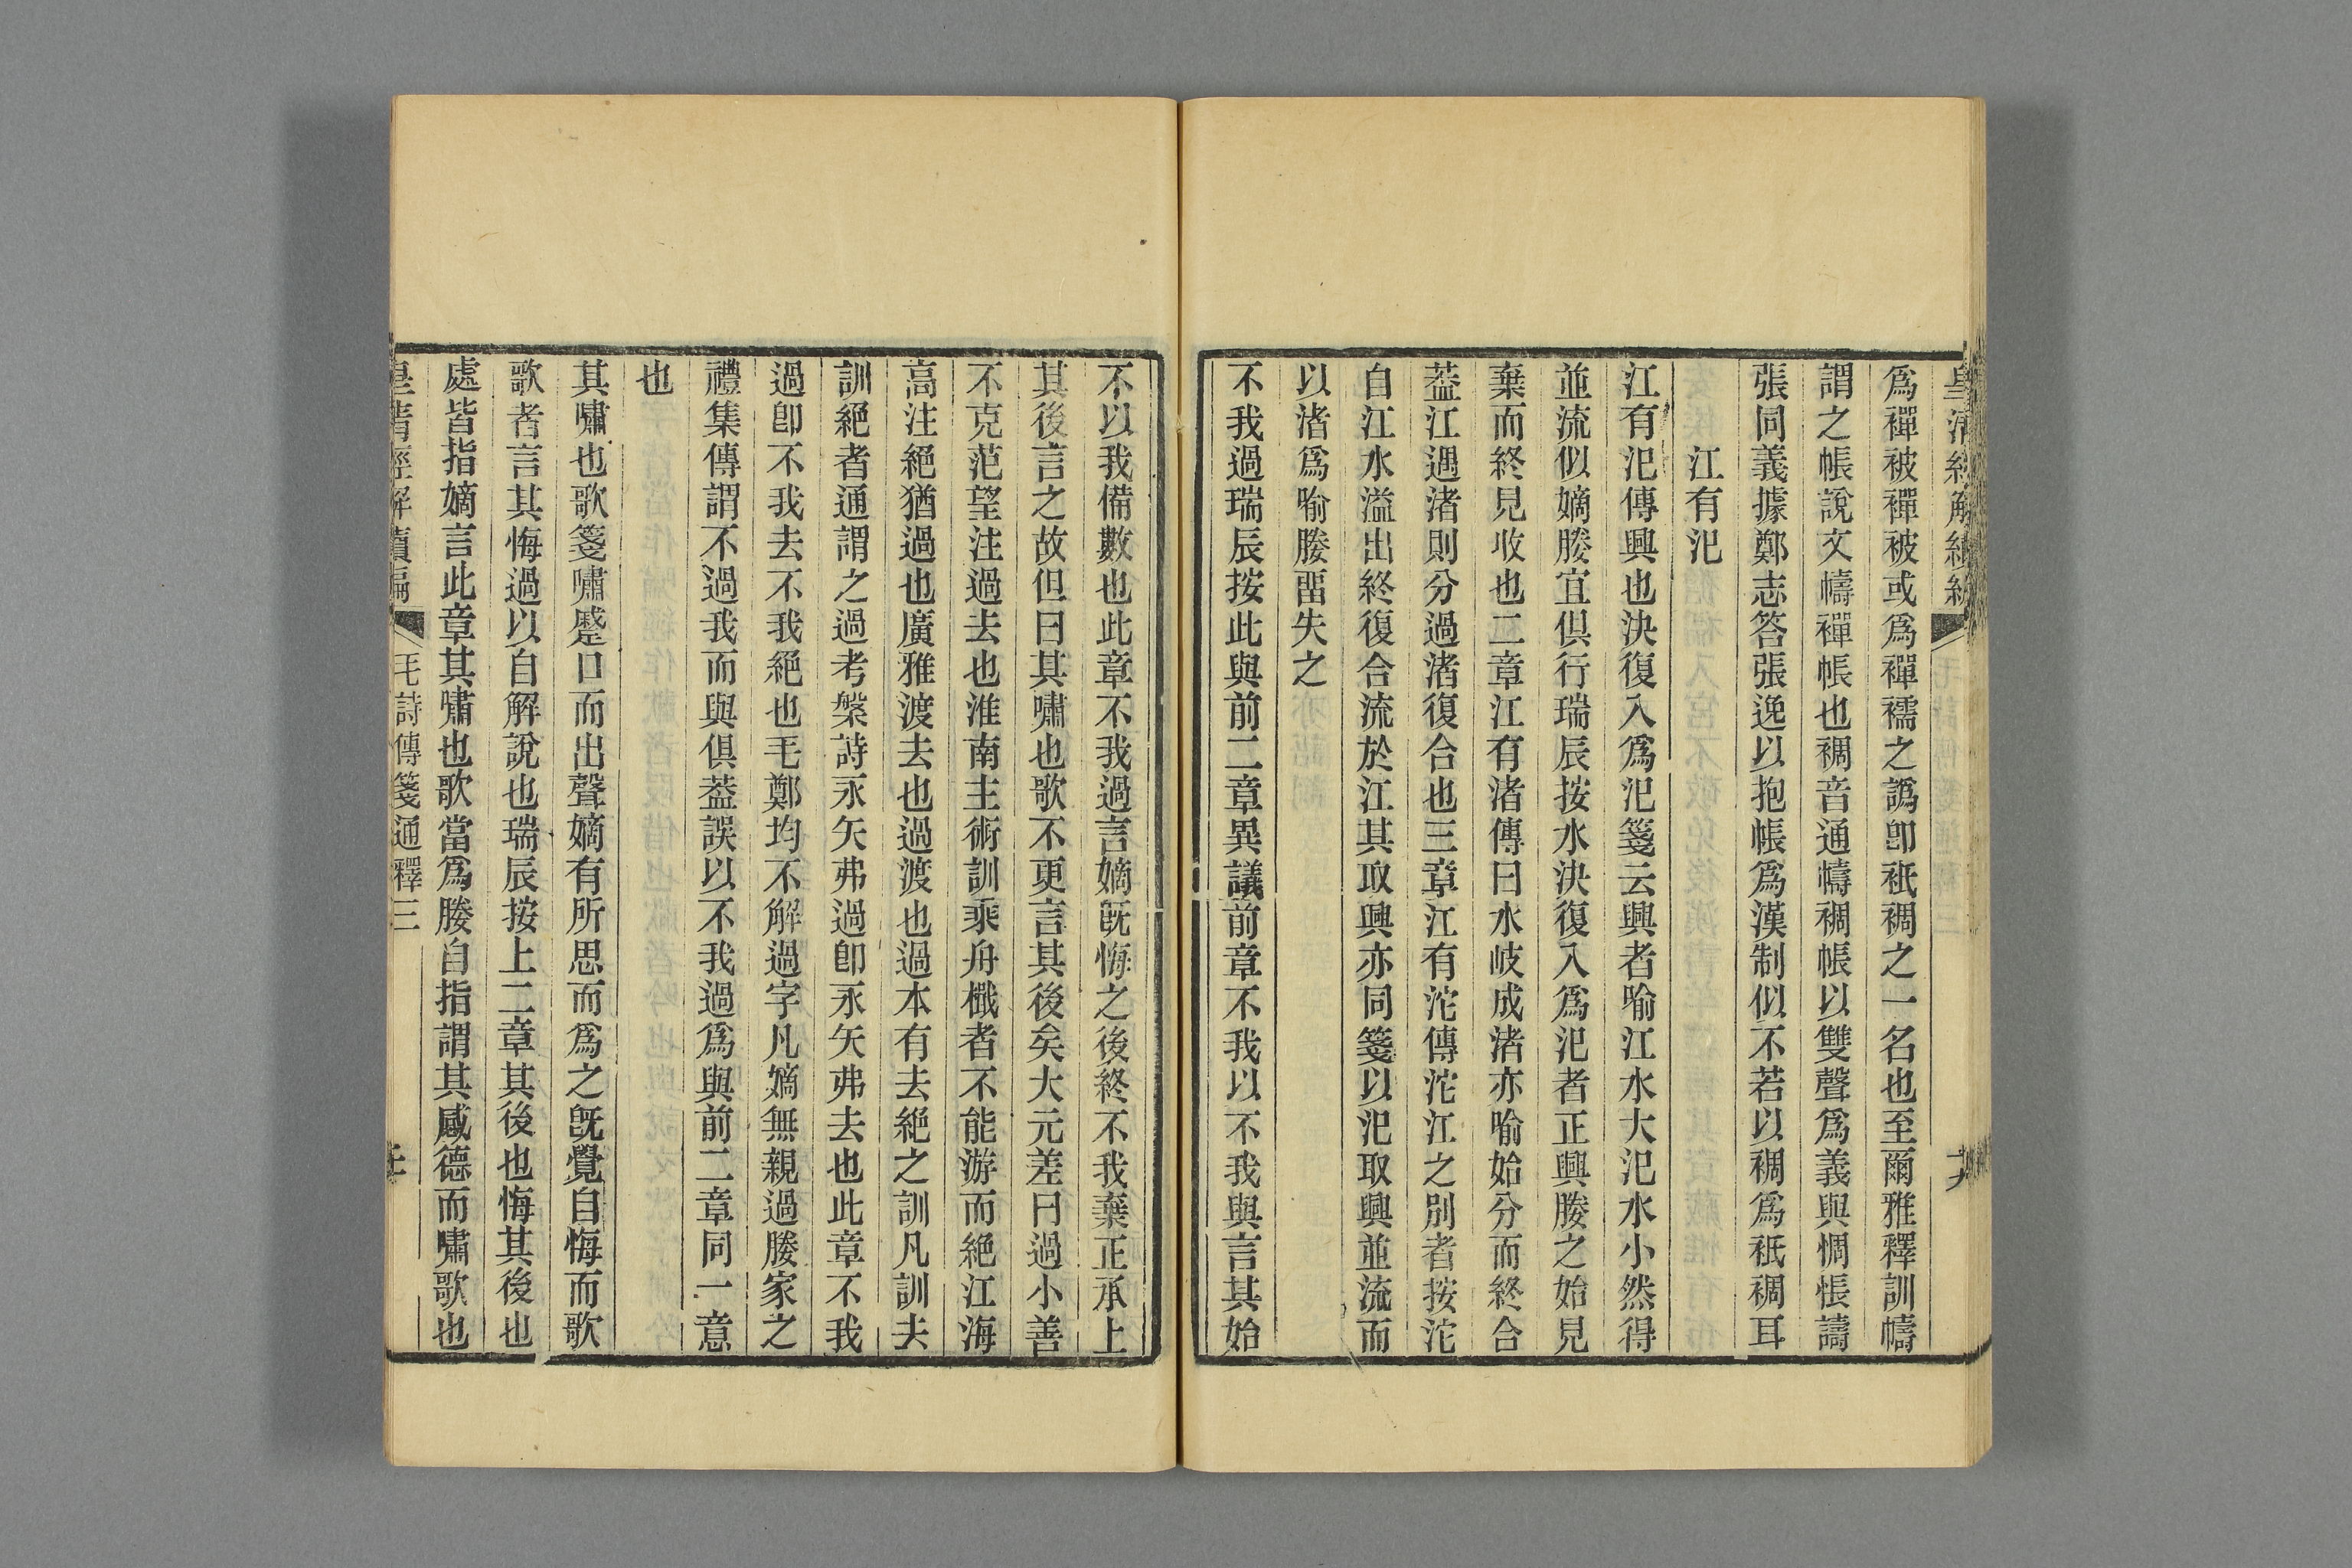 皇清經解續編
爲襌被襌被或爲襌襦之譌卽袛裯之一名也至爾雅釋訓幬
謂之帳說文幬襌帳也裯音通幬裯帳以雙聲爲義與惆悵譸
張同義據鄭志答張逸以抱帳爲漢制似不若以裯爲袛裯耳
江有汜
江有汜傳興也決復入爲汜箋云興者喻江水大汜水小然得
並流似嫡媵宜俱行瑞辰按水決復入爲汜者正興媵之始見
棄而終見收也二章江有渚傳曰水岐成渚亦喻始分而終合
葢江遇渚則分過渚復合也三章江有沱傳沱江之別者按沱
自江水溢出終復合流於江其取興亦同箋以汜取興並流而
以渚爲喻媵畱失之
不我過瑞辰按此與前二章異議前章不我以不我與言其始
不以我備數也此章不我過言嫡旣悔之後終不我棄正承上
其後言之故但曰其嘯也歌不更言其後矣大元差曰過小善
不克范望注過去也淮南主術訓乘舟檝者不能游而絕江海
高注絕猶過也廣雅渡去也過渡也過本有去絕之訓凡訓去
訓絕者通謂之過考槃詩永矢弗過卽永矢弗去也此章不我
過卽不我去不我絕也毛鄭均不解過字凡嫡無親過媵家之
禮集傳謂不過我而與俱葢誤以不我過爲與前二章同一意
也
其嘯也歌箋嘯蹙口而出聲嫡有所思而爲之旣覺自悔而歌
歌者言其悔過以自解說也瑞辰按上二章其後也悔其後也
處皆指嫡言此章其嘯也歌當爲媵自指謂其感德而嘯歌也
皇清經解續編
毛詩傳箋通釋三